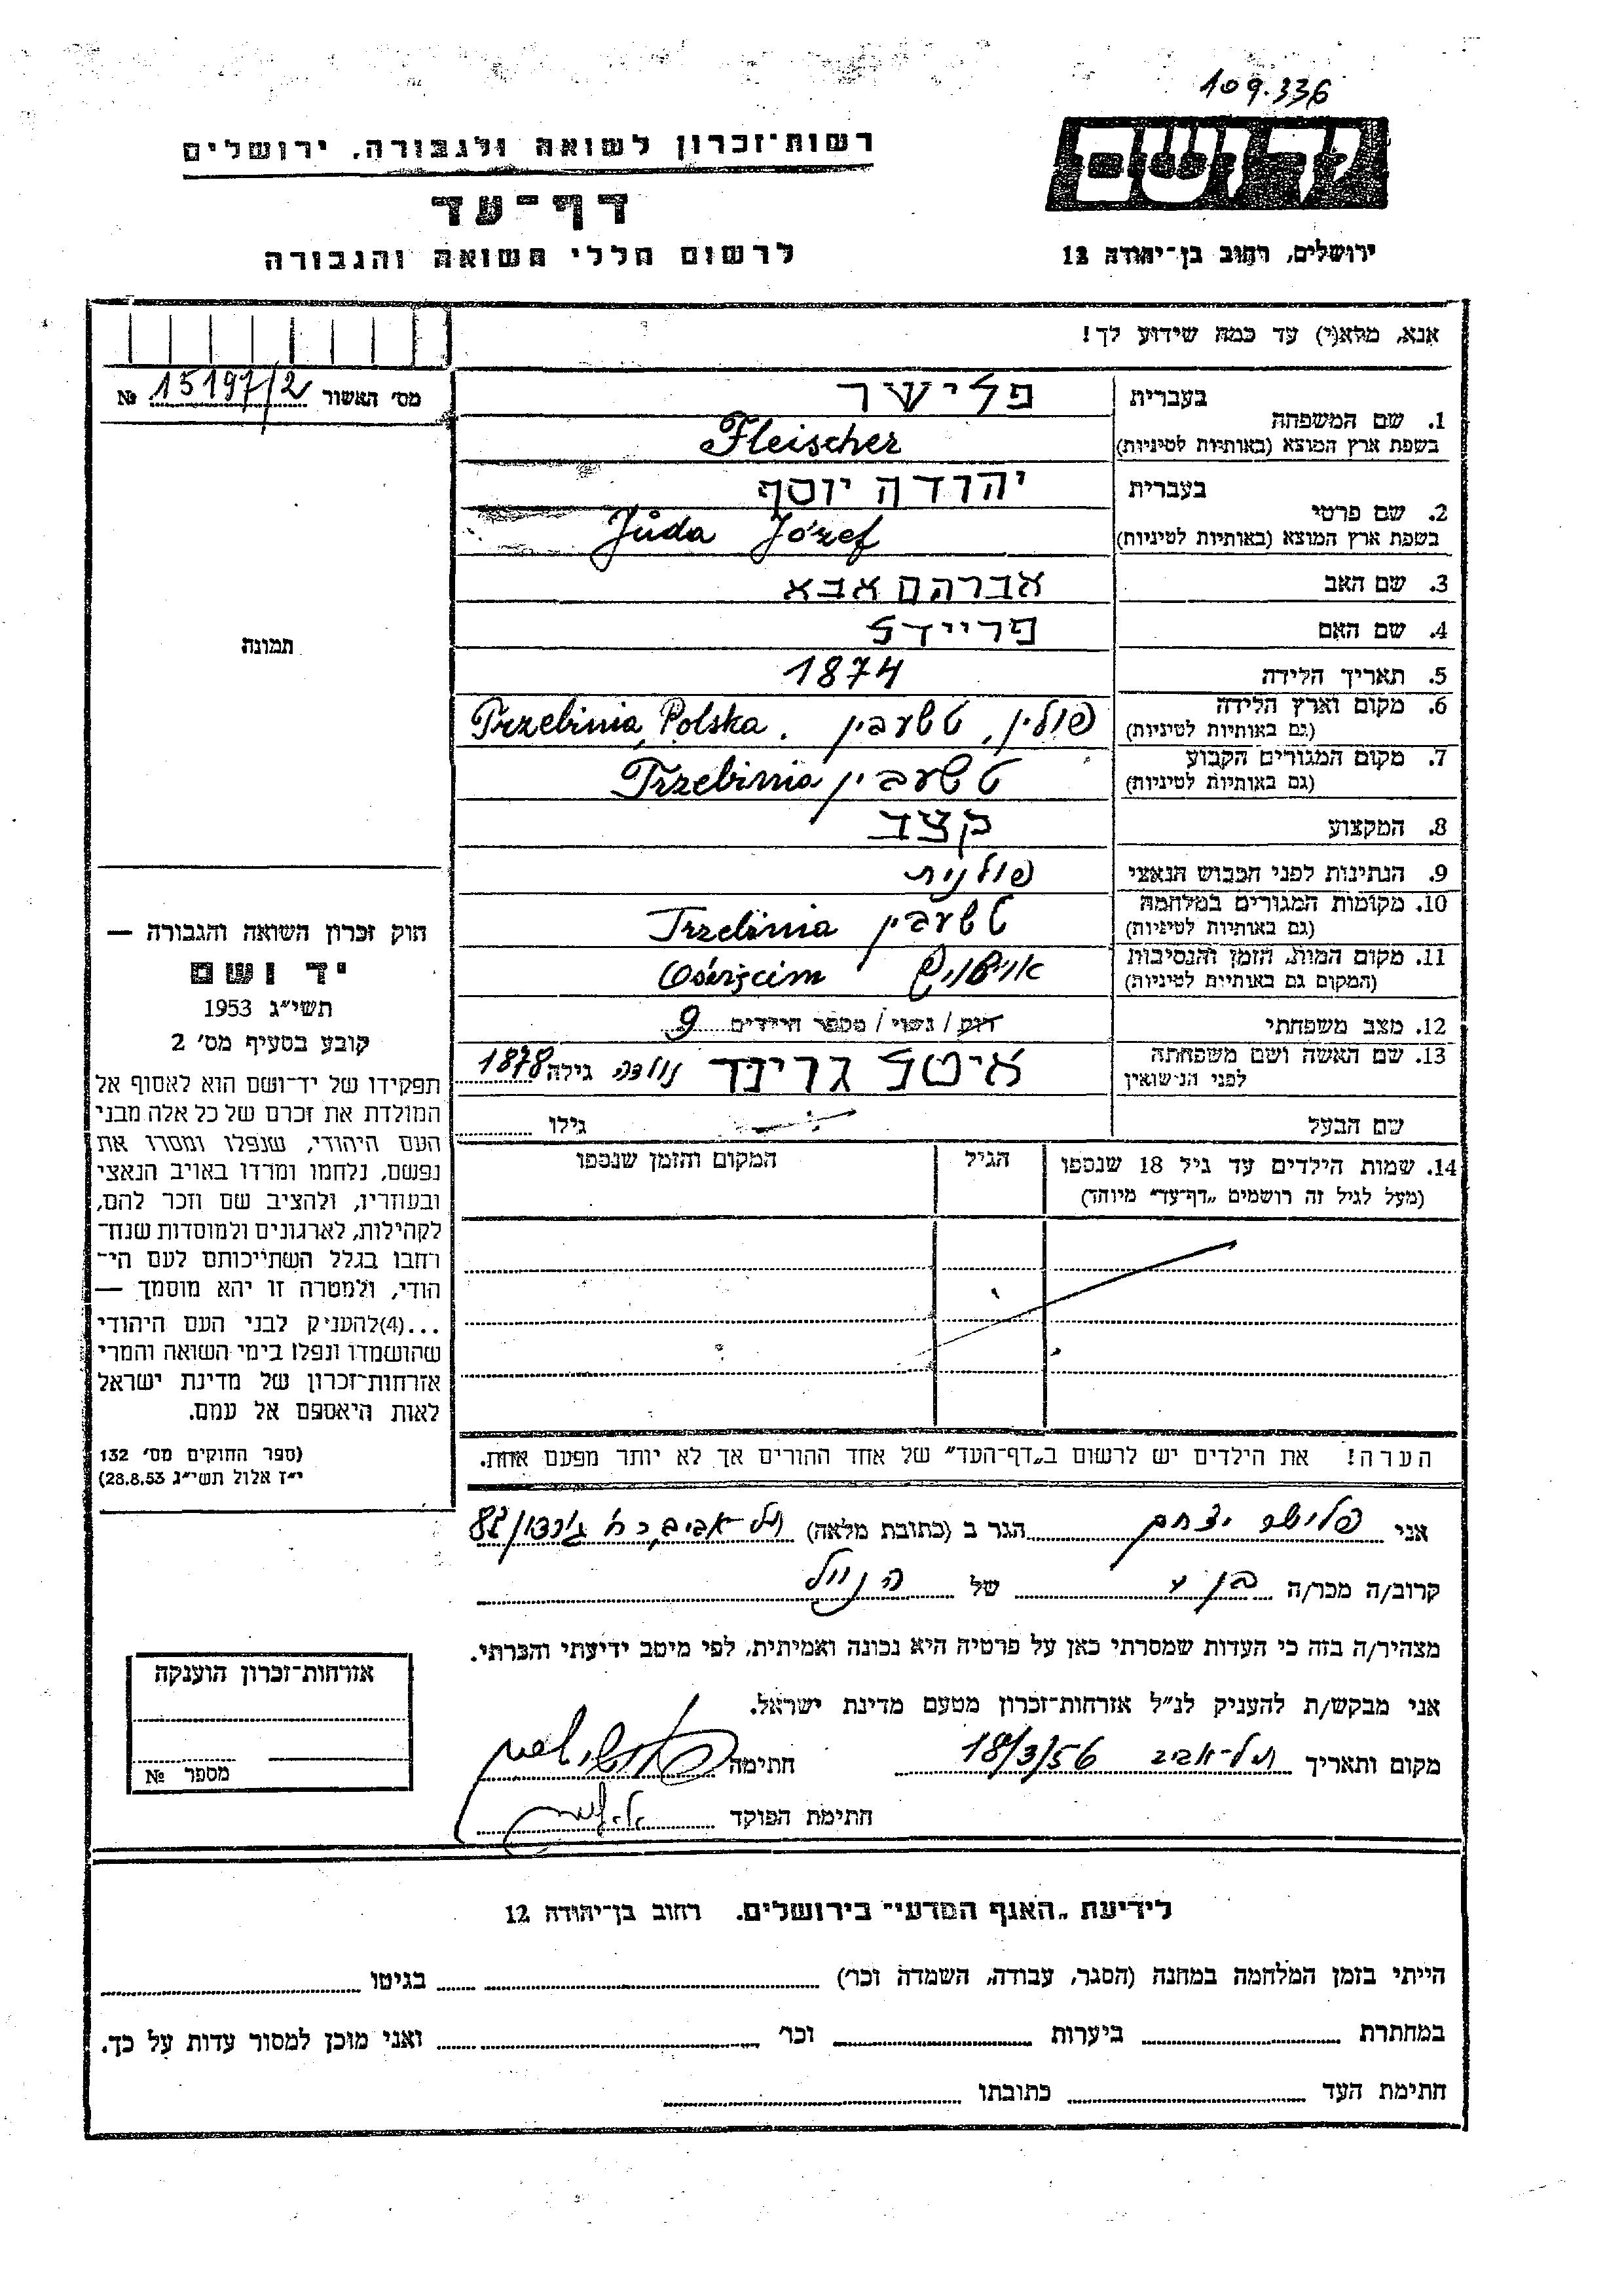 109.336
יד ושם
רשות־זכרון לשואה ולגבורה, ירושלים
דף־עד
ירושלים, רחוב בן־יהודה 12
לרשום חללי השואה והגבורה
אנא, מלא(י) עד כמה שידוע לך!
מס׳ האשור № 15197/2
1. שם המשפחה
בעברית פלישר
בשפת ארץ המוצא (באותיות לטיניות) Fleischer
2. שם פרטי
בעברית יהודה יוסף
בשפת ארץ המוצא (באותיות לטיניות) Juda Józef
3. שם האב אברהם אבא
4. שם האם פריידל
5. תאריך הלידה 1874
6. מקום וארץ הלידה
(גם באותיות לטיניות) פולין, טשעבין. Trzebinia, Polska
7. מקום המגורים הקבוע
(גם באותיות לטיניות) טשעבין Trzebinia
8. המקצוע קצב
9. הנתינות לפני הכבוש הנאצי פולנית
10. מקומות המגורים במלחמה
(גם באותיות לטיניות) טשעבין Trzebinia
11. מקום המות, הזמן והנסיבות
(המקום גם באותיות לטיניות) Oświęcim
12. מצב משפחתי רווק / נשוי / מספר הילדים 9
13. שם האשה ושם משפחתה
לפני הנישואין איטל גרינד נולדה גילה 1878
שם הבעל גילו
14. שמות הילדים עד גיל 18 שנספו
(מעל לגיל זה רושמים „דף־עד״ מיוחד)
הגיל
המקום והזמן שנספו
הערה! את הילדים יש לרשום ב„דף־העד״ של אחד ההורים אך לא יותר מפעם אחת.
תמונה
חוק זכרון השואה והגבורה —
יד ושם
תשי״ג 1953
קובע בסעיף מס׳ 2
תפקידו של יד־ושם הוא לאסוף אל
המולדת את זכרם של כל אלה מבני
העם היהודי, שנפלו ומסרו את
נפשם, נלחמו ומרדו באויב הנאצי
ובעוזריו, ולהציב שם וזכר להם,
לקהילות, לארגונים ולמוסדות שנח־
רחבו בגלל השתייכותם לעם הי־
הודי, ולמטרה זו יהא מוסמך —
...(4)להעניק לבני העם היהודי
שהושמדו ונפלו בימי השואה והמרי
אזרחות־זכרון של מדינת ישראל
לאות היאספם אל עמם.
(ספר החוקים מס׳ 132
י״ז אלול תשי״ג 28.8.53)
אני פלישר יצחק הגר ב (כתובת מלאה) תל־אביב רח׳ גורדון 82
קרוב/ה מכר/ה בן של הנ״ל
מצהיר/ה בזה כי העדות שמסרתי כאן על פרטיה היא נכונה ואמיתית, לפי מיטב ידיעתי והכרתי.
אני מבקש/ת להעניק לנ״ל אזרחות־זכרון מטעם מדינת ישראל.
מקום ותאריך תל־אביב 18/3/56 חתימה
חתימת הפוקד
אזרחות־זכרון הוענקה
מספר №
לידיעת „האגף המדעי״ בירושלים. רחוב בן־יהודה 12
הייתי בזמן המלחמה במחנה (הסגר, עבודה, השמדה וכר׳) בגיטו
במחתרת ביערות וכר׳ ואני מוכן למסור עדות על כך.
חתימת העד כתובתו